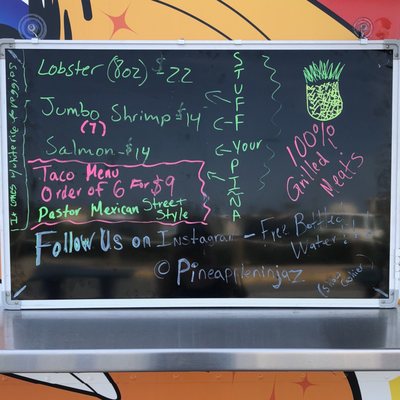 Lobster (8oz) $22
Jumbo Shrimp $14
(7)
Salmon - $14
Taco Menu
Order of 6 For $9
Pastor Mexican Street
Style
STUFF
Your
PIÑA
100%
Grilled
Meats
Follow Us on Instagram - Free Bottle
Water
© Pineappleninjaz